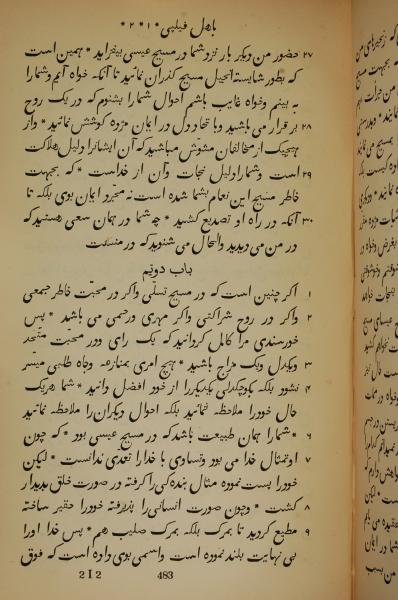 باهل فیلیپی * ۱ * ۲ *
۲۷ حضور من دیکر بار نزد شما در مسیح عیسی بیفزاید * همین است
که بطور شایستهٔ انجیل مسیح کذران نمائید تا آنکه خواه آیم وشما را
به بینم وخواه غایب باشم احوال شما را بشنوم که در یک روح
۲۸ بر قرار می باشید وباتحاد دل در ایمان مژده کوشش نمائید * واز
هیچیک از مخالفان مشوّش مباشید که آن ایشانرا دلیل هلاکت
۲۹ است وشما را دلیل نجات وآن از خداست * که بجهت
خاطر مسیح این انعام بشما شده است نه مجرّد ایمان بوی بلکه تا
۳۰ آنکه در راه او تصدیع کشید * چه شما در همان سعی هستید که
در من می دیدید والحال می شنوید که در منست
باب دویّم
۱ اکر چنین است که در مسیح تسلّی واکر در محبّت خاطر جمعی
۲ واکر در روح شراکتی واکر مهری ورحمی می باشد * پس
خورسندی مرا کامل کردانید که یک رای ودر محبّت متّحد
۳ ویکدل ویک مزاج باشید * هیچ امری بمنازعه وجاه طلبی میسر
۴ نشود بلکه بکوچکدلی یکدیکر را از خود افضل دانید * شما هریک
حال خود را ملاحظه ننمائید بلکه احوال دیکران را ملاحظه نمائید
۶ * شما را همان طبیعت باشد که در مسیح عیسی بود * که چون
۷ او تمثال خدا می بود وتساوی با خدا را تعدّی ندانست * لیکن
خود را پست نموده مثال بنده کی را کرفته در صورت خلق پدیدار
۸ کشت * وچون صورت انسانی را پذیرفته خود را حقیر ساخته
۹ مطیع کردید تا بمرک بلکه بمرک صلیب هم * پس خدا او را
بی نهایت بلند نموده است واسمی بوی داده است که فوق
2 I 2 483